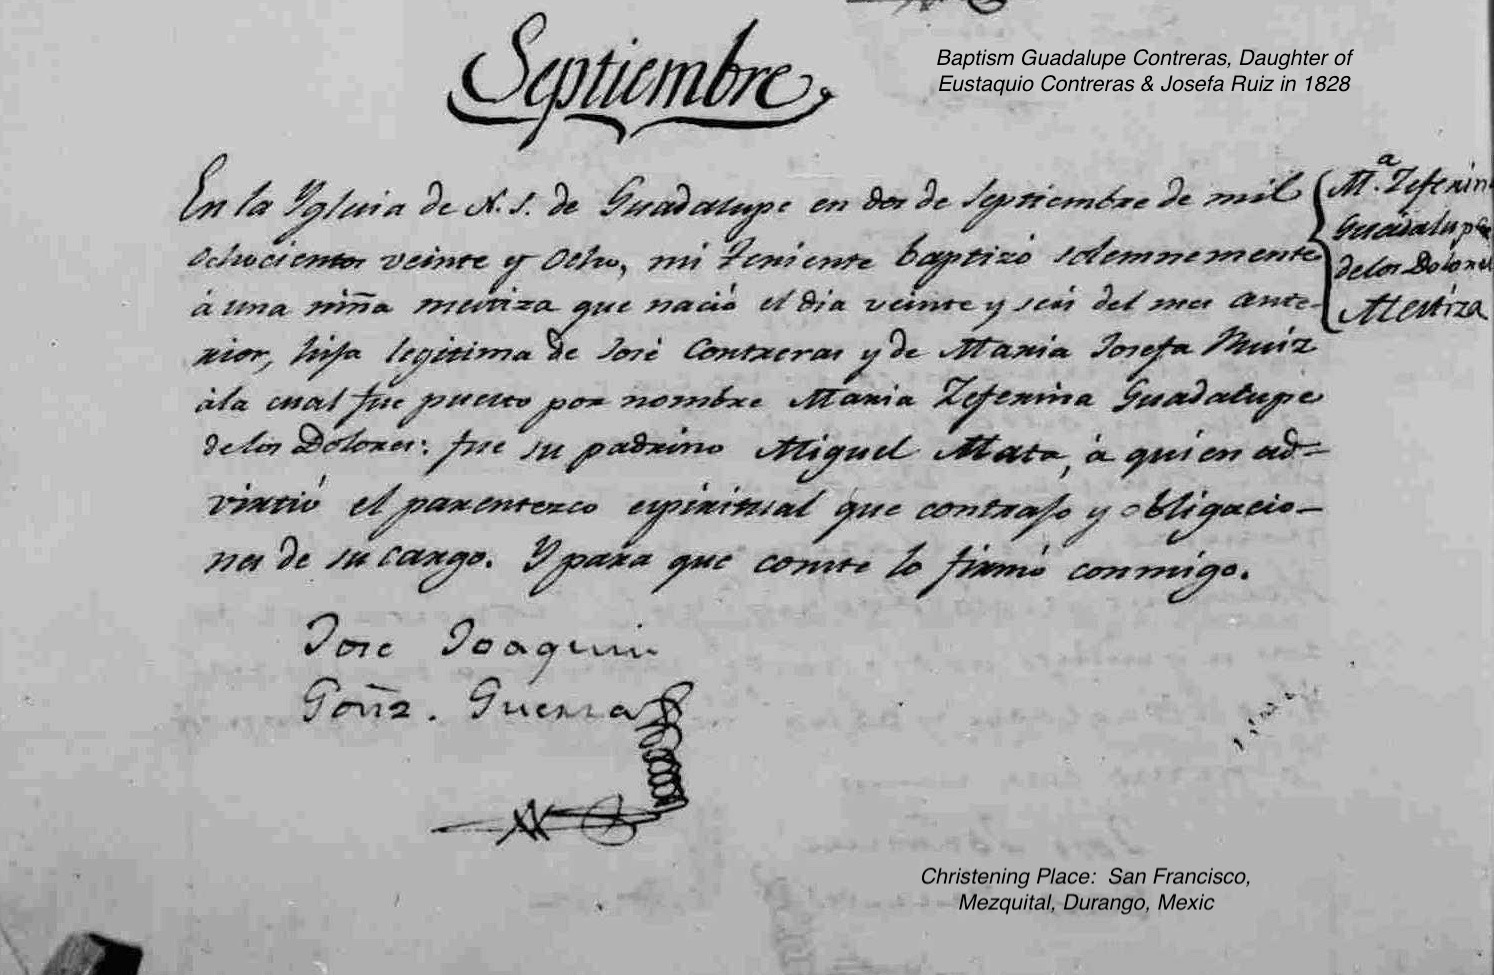 Septiembre
Baptism Guadalupe Contreras, Daughter of
Eustaquio Contreras & Josefa Ruiz in 1828
En la Yglecia de N. S. de Guadalupe en dos de Septiembre de mil
ochocientos veinte y ocho, mi Teniente baptizó solemnemente
á una niña mestiza que nació el dia veinte y seis del mes ante-
rior, hija legitima de José Contreras y de Maria Josefa Ruiz
á la cual fue puesto por nombre Maria Zeferina Guadalupe
de los Dolores: fue su padrino Miguel Mata, á quien ad-
virtió el parentezco espiritual que contrajo y obligacio-
nes de su cargo. Y para que conste lo firmó conmigo.
Mª. Zeferin
Guadalupe
de los Dolores
Mestiza
Jose Joaquin
Gonz. Guerra
Christening Place: San Francisco,
Mezquital, Durango, Mexic